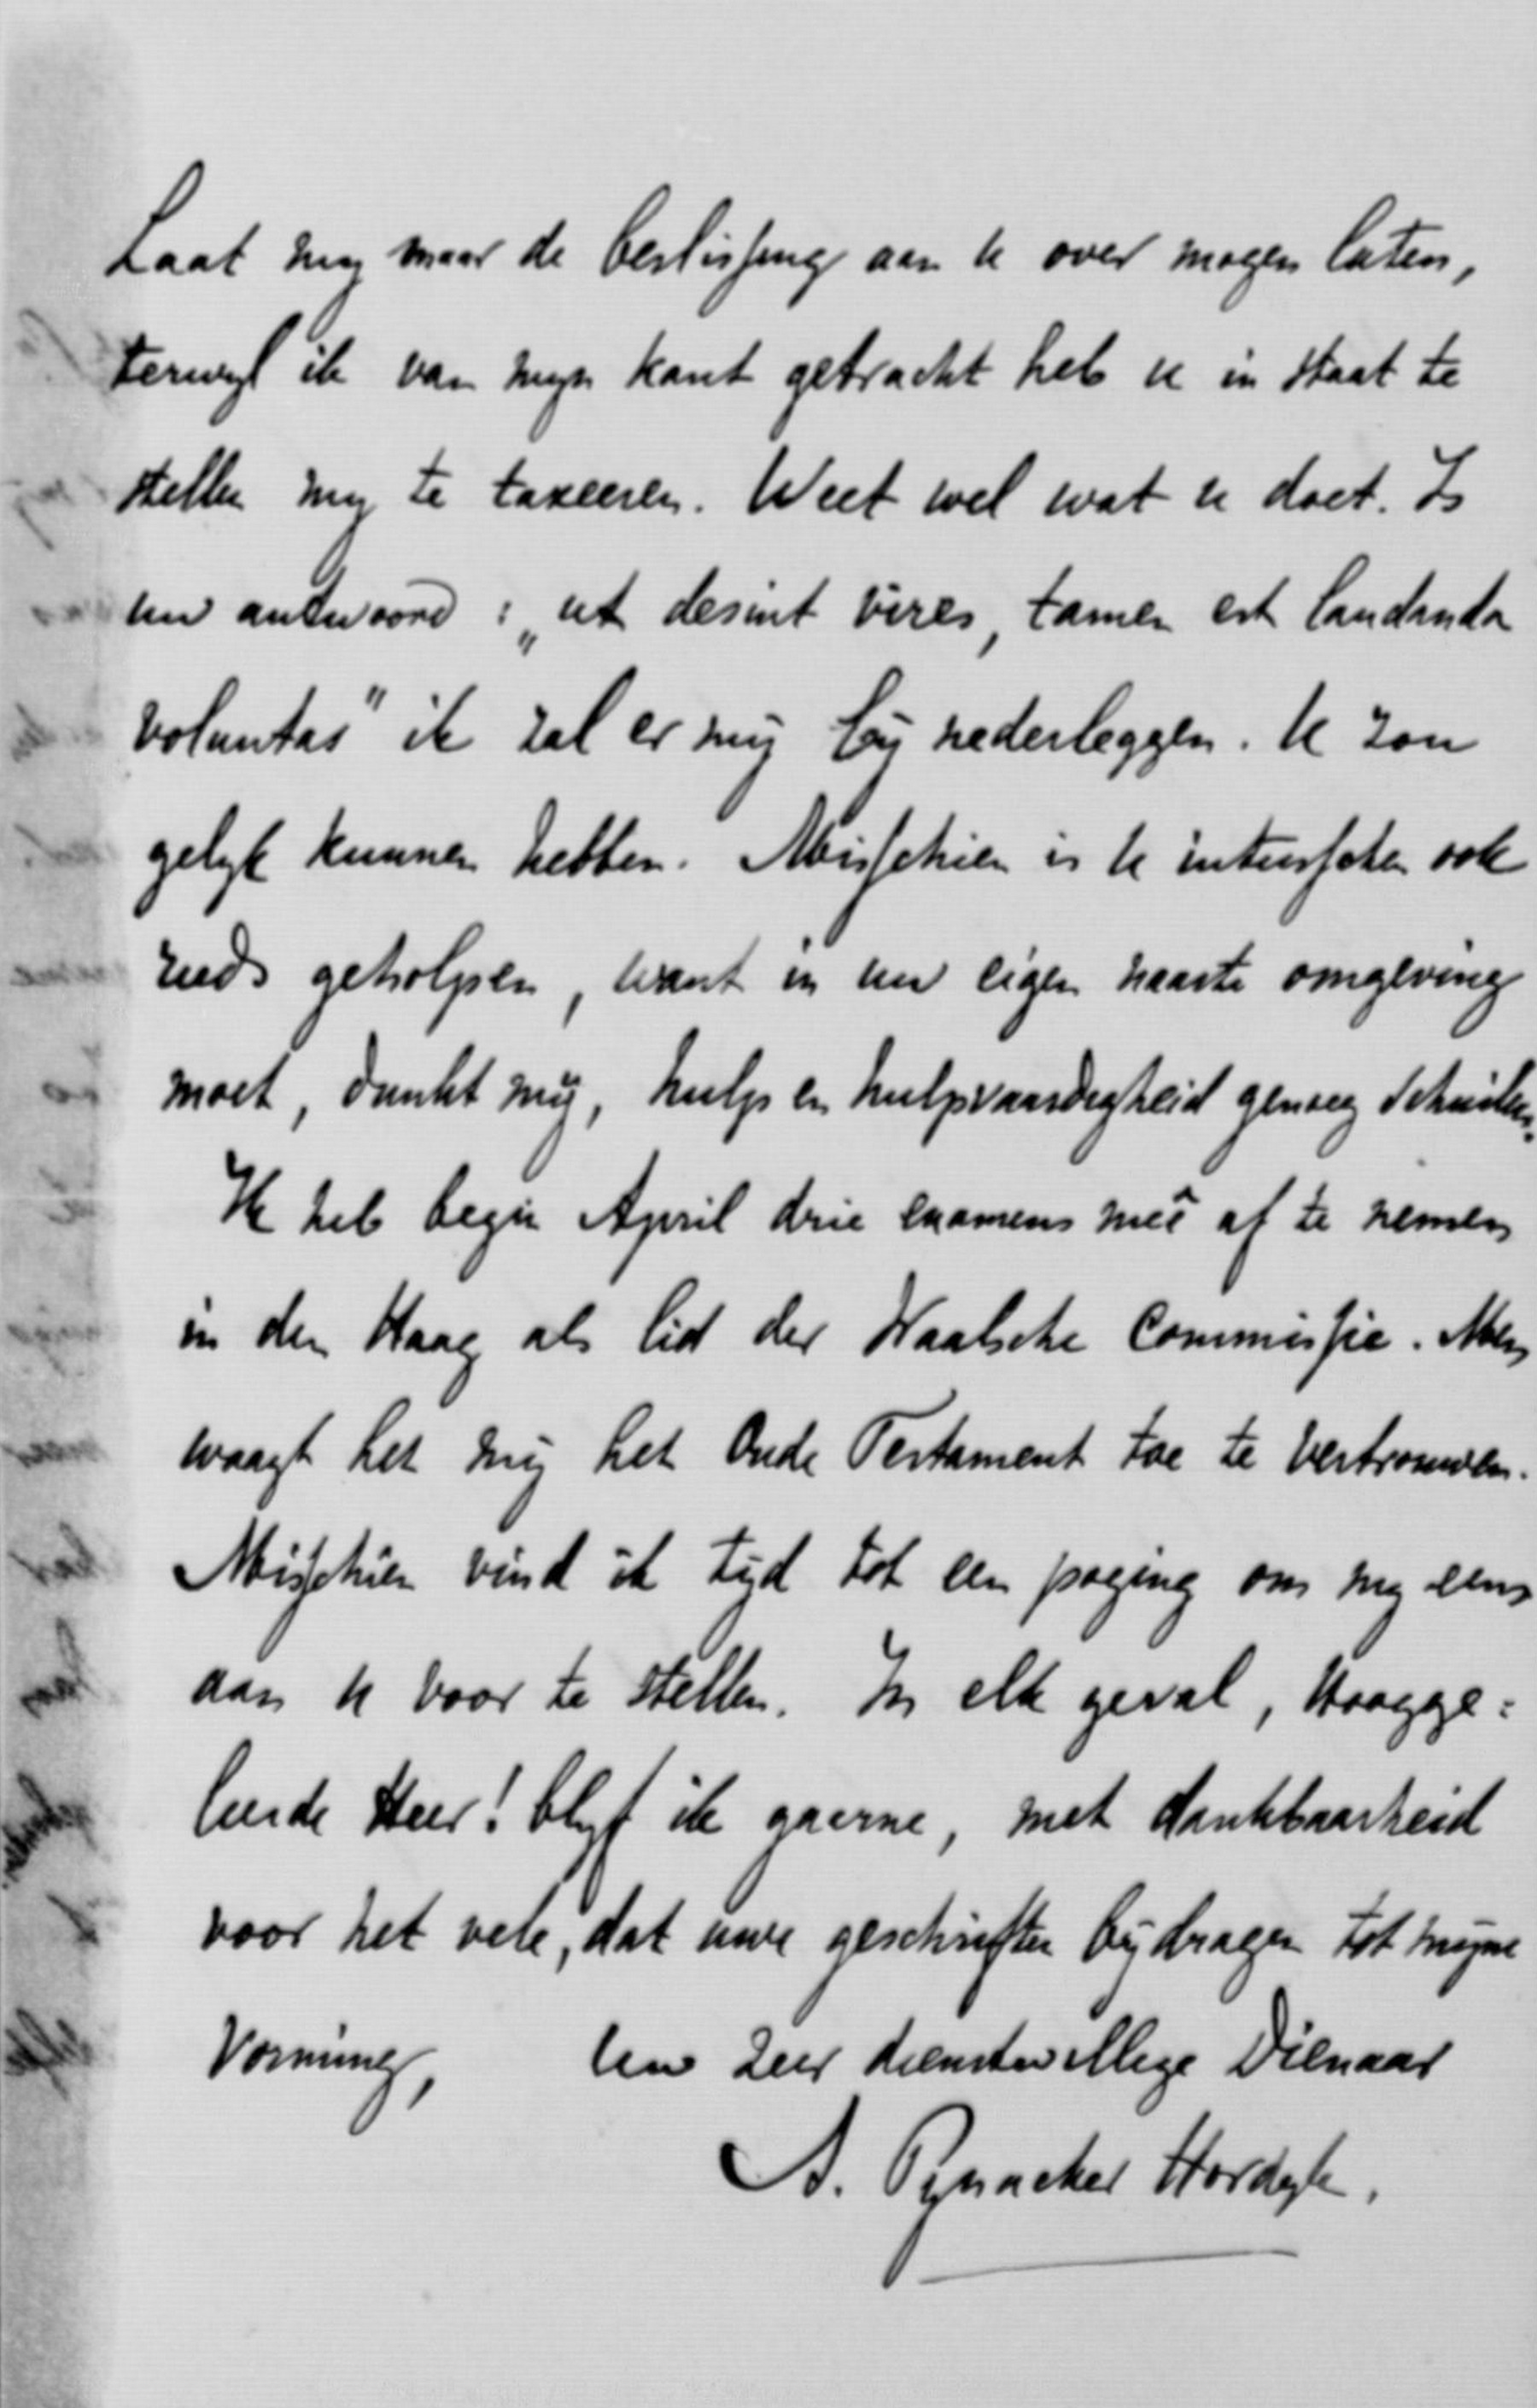 Laat my maar de beslissing aan U over mogen laten,
terwyl ik van myn kant getracht heb U in staat te
stellen my te taxeeren. Weet wel wat U doet. Is
uw antwoord: „ut desint vires, tamen est laudanda
voluntas" ik zal er mij bij nederleggen. U zou
gelyk kunnen hebben. Misschien is U intusschen ook
reeds geholpen, want in uw eigen naaste omgeving
moet, dunkt mij, hulp en hulpvaardigheid genoeg schuilen.
Ik heb begin April drie examens meê af te nemen
in den Haag als lid der Waalsche Commissie. Men
waagt het mij het Oude Testament toe te vertrouwen.
Misschien vind ik tijd tot een poging om my eens
aan U voor te stellen. In elk geval, Hoogge:
leerde Heer! blyf ik gaarne, met dankbaarheid
voor het vele, dat uwe geschriften bijdragen tot mijne
Vorming, Uw zeer dienstwillige Dienaar
A. Pynacker Hordyk.